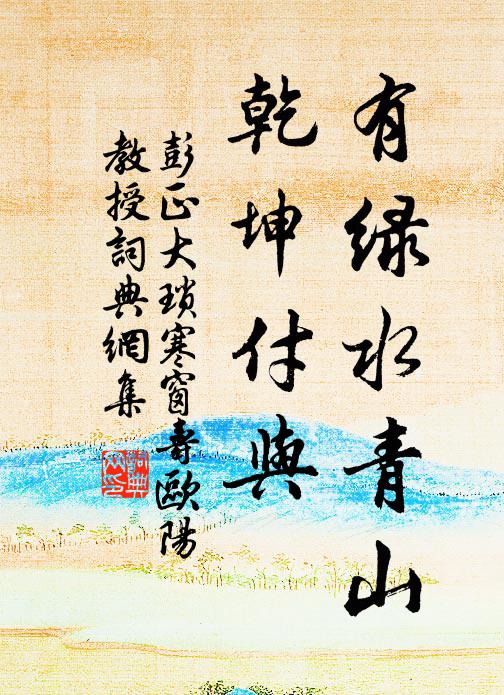 有绿水青山
乾坤付與
彭正大瑣寒窗壽歐陽
教授詞典網集